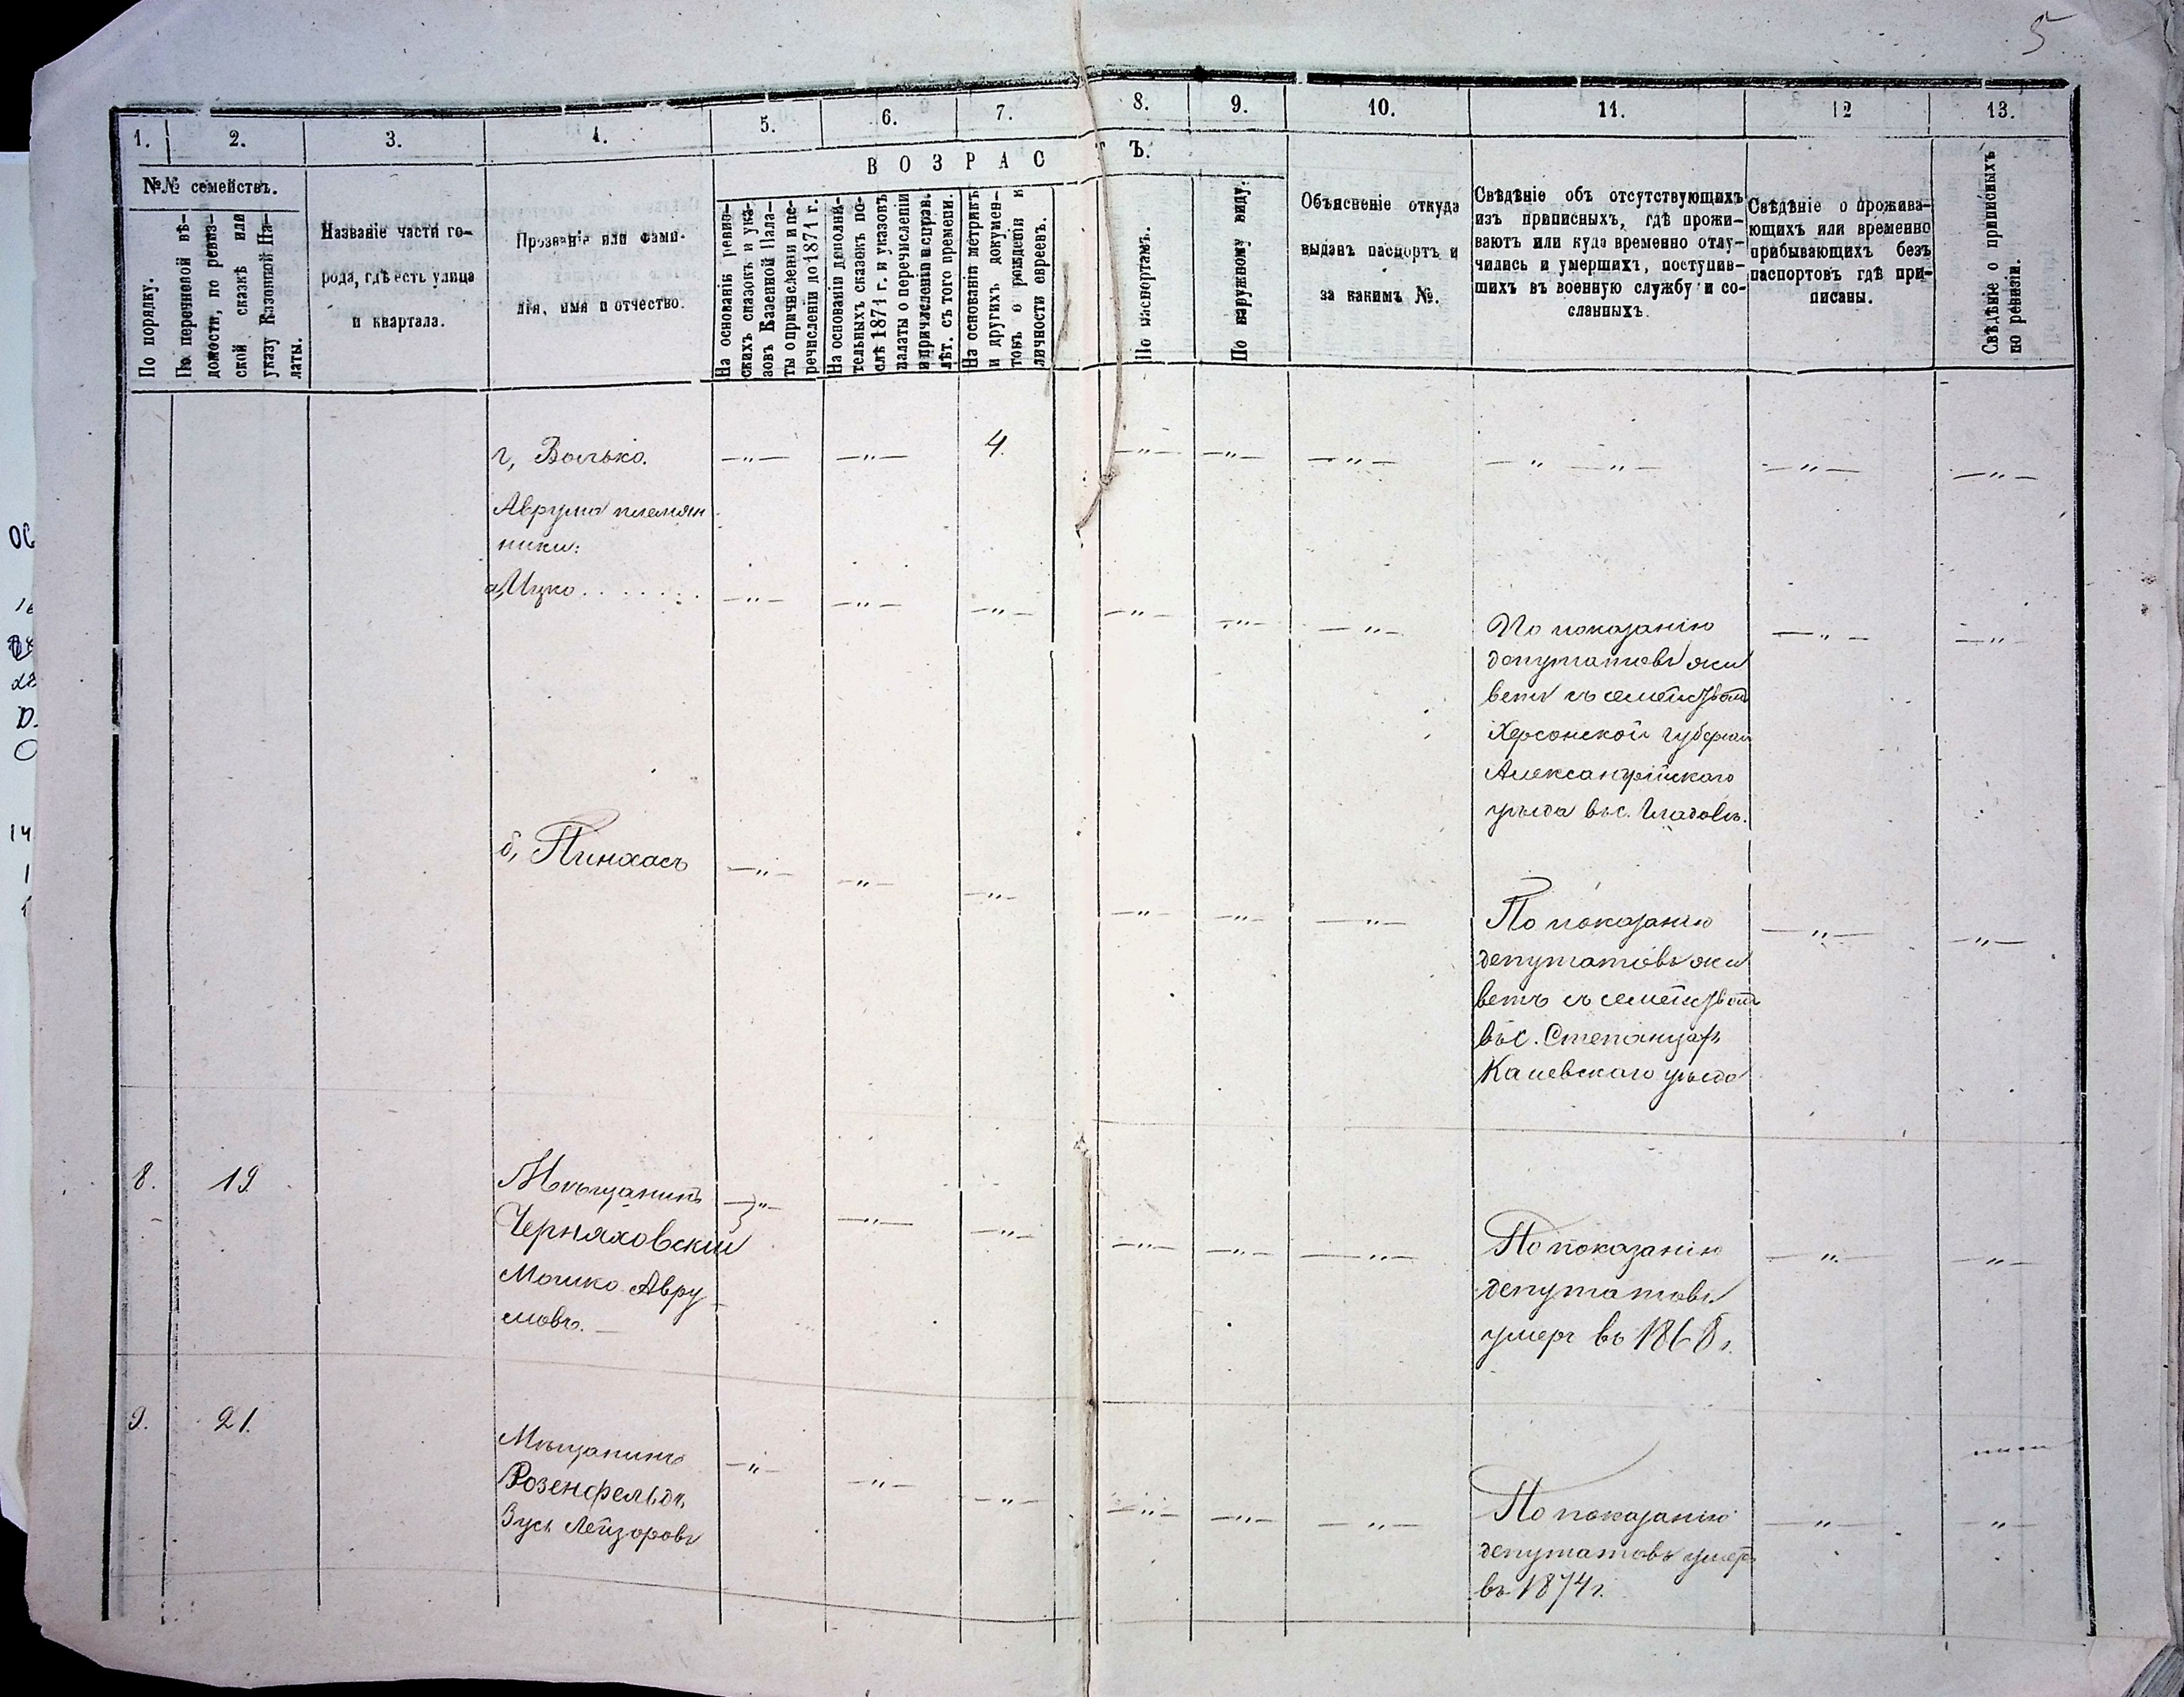 5
1.
2.
3.
4.
5.
6.
7.
8.
9.
10.
11.
12
13.
№№ семействъ.
По порядку.
По перечневой вѣ-
домости, по ревиз-
ской сказкѣ или
указу Казенной Па-
латы.
Названіе части го-
рода, гдѣ есть улица
и квартала.
Прозваніе или фами-
лія, имя и отчество.
ВОЗРАСТЪ.
На основаніи ревиз-
скихъ сказокъ и ука-
зовъ Казенной Пала-
ты о причисленіи и пе-
речисленіи до 1871 г.
На основаніи дополни-
тельныхъ сказокъ по-
слѣ 1871 г. и указовъ
палаты о перечисленіи
и причисленіи и справ.
лѣт. съ того времени.
На основаніи метрикъ
и другихъ докумен-
товъ о рожденіи и
личности евреевъ.
По паспортамъ.
По наружному виду.
Объясненіе откуда
выданъ паспортъ и
за какимъ №.
Свѣдѣніе объ отсутствующихъ
изъ приписныхъ, гдѣ прожи-
ваютъ или куда временно отлу-
чились и умершихъ, поступив-
шихъ въ военную службу и со-
сланныхъ.
Свѣдѣніе о прожива-
ющихъ или временно
прибывающихъ безъ
паспортовъ гдѣ при-
писаны.
Свѣдѣніе о приписныхъ
по ревизіи.
г, Волько.
—„— —„— 4. —„— —„— —„— —„—„— —„— —„—
Аврума племян
ники:
а, Ицко . . . . . . .
—„— —„— —„— —„— —„— —„—
По показанію
депутатовъ жи
ветъ съ семействомъ
Херсонской губерніи
Александрійскаго
уѣзда въ с.
—„— —„—
б, Пинхасъ
—„— —„— —„— —„— —„— —„—
По показанію
депутатовъ жи
ветъ съ семействомъ
въ с. Степанцахъ
Каневскаго уѣзда
—„— —„—
8. 19.
Мѣщанинъ
Черняховскій
Мошко Авру
мовъ. —
—„— —„— —„— —„— —„— —„—
По показанію
депутатовъ
умеръ въ 1868 г.
—„— —„—
9. 21.
Мѣщанинъ
Розенфельдъ
Зусь Лейзоровъ
—„— —„— —„— —„— —„— —„—
По показанію
депутатовъ умеръ
въ 1874 г.
—„— —„—